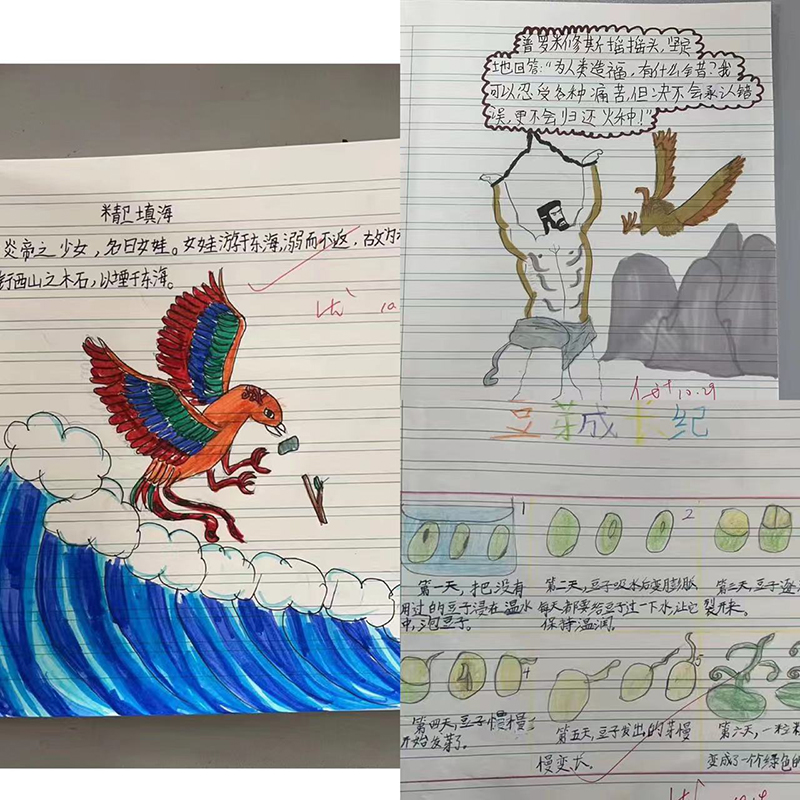 精卫填海
炎帝之少女，名曰女娃。女娃游于东海，溺而不返，故为
衔西山之木石，以堙于东海。
优
普罗米修斯摇摇头，坚定
地回答：“为人类造福，有什么错？我
可以忍受各种痛苦，但决不会承认错
误，更不会归还火种！”
优 10.29
豆芽成长纪
1
2
第一天，把没有
用过的豆子浸在温水
中，泡豆子。
第二天，豆子吸水后变膨胀
每天都要给豆子过一下水，让它
保持温润。
第三天，豆子逐
裂开来。
4
5
第四天，豆子慢慢
开始发芽了。
第五天，豆子发出的芽慢
慢变长。
第六天，一粒
变成了一个绿色的
优